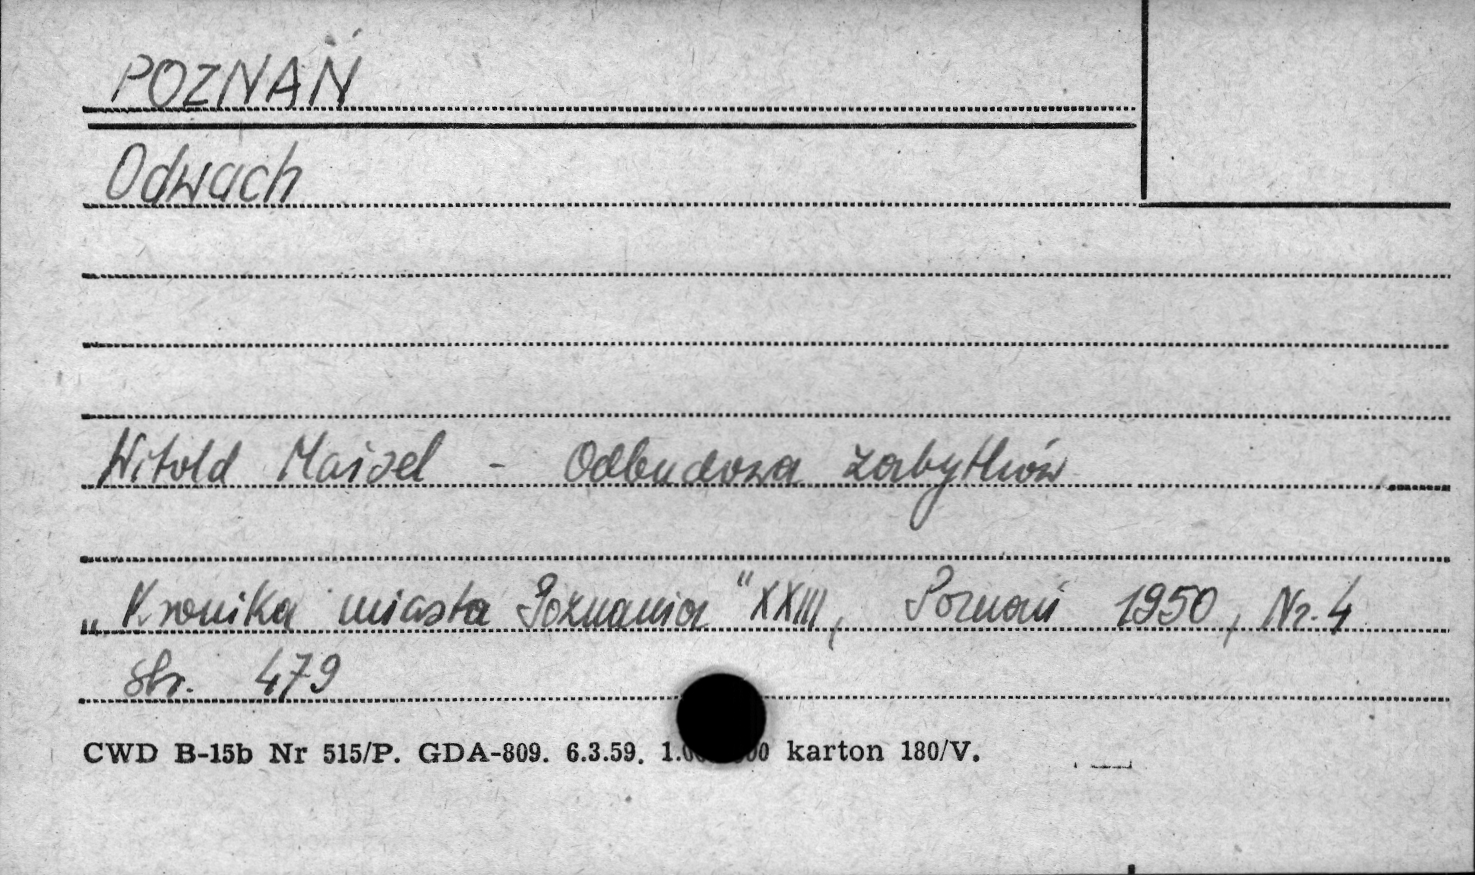 POZNAŃ
Odwach
Witold Maisel - Odbudowa zabytków
„Kronika miasta Poznania" XXIII, Poznań 1950, Nr. 4
str. 479
CWD B-15b Nr 515/P. GDA-809. 6.3.59. karton 180/V.